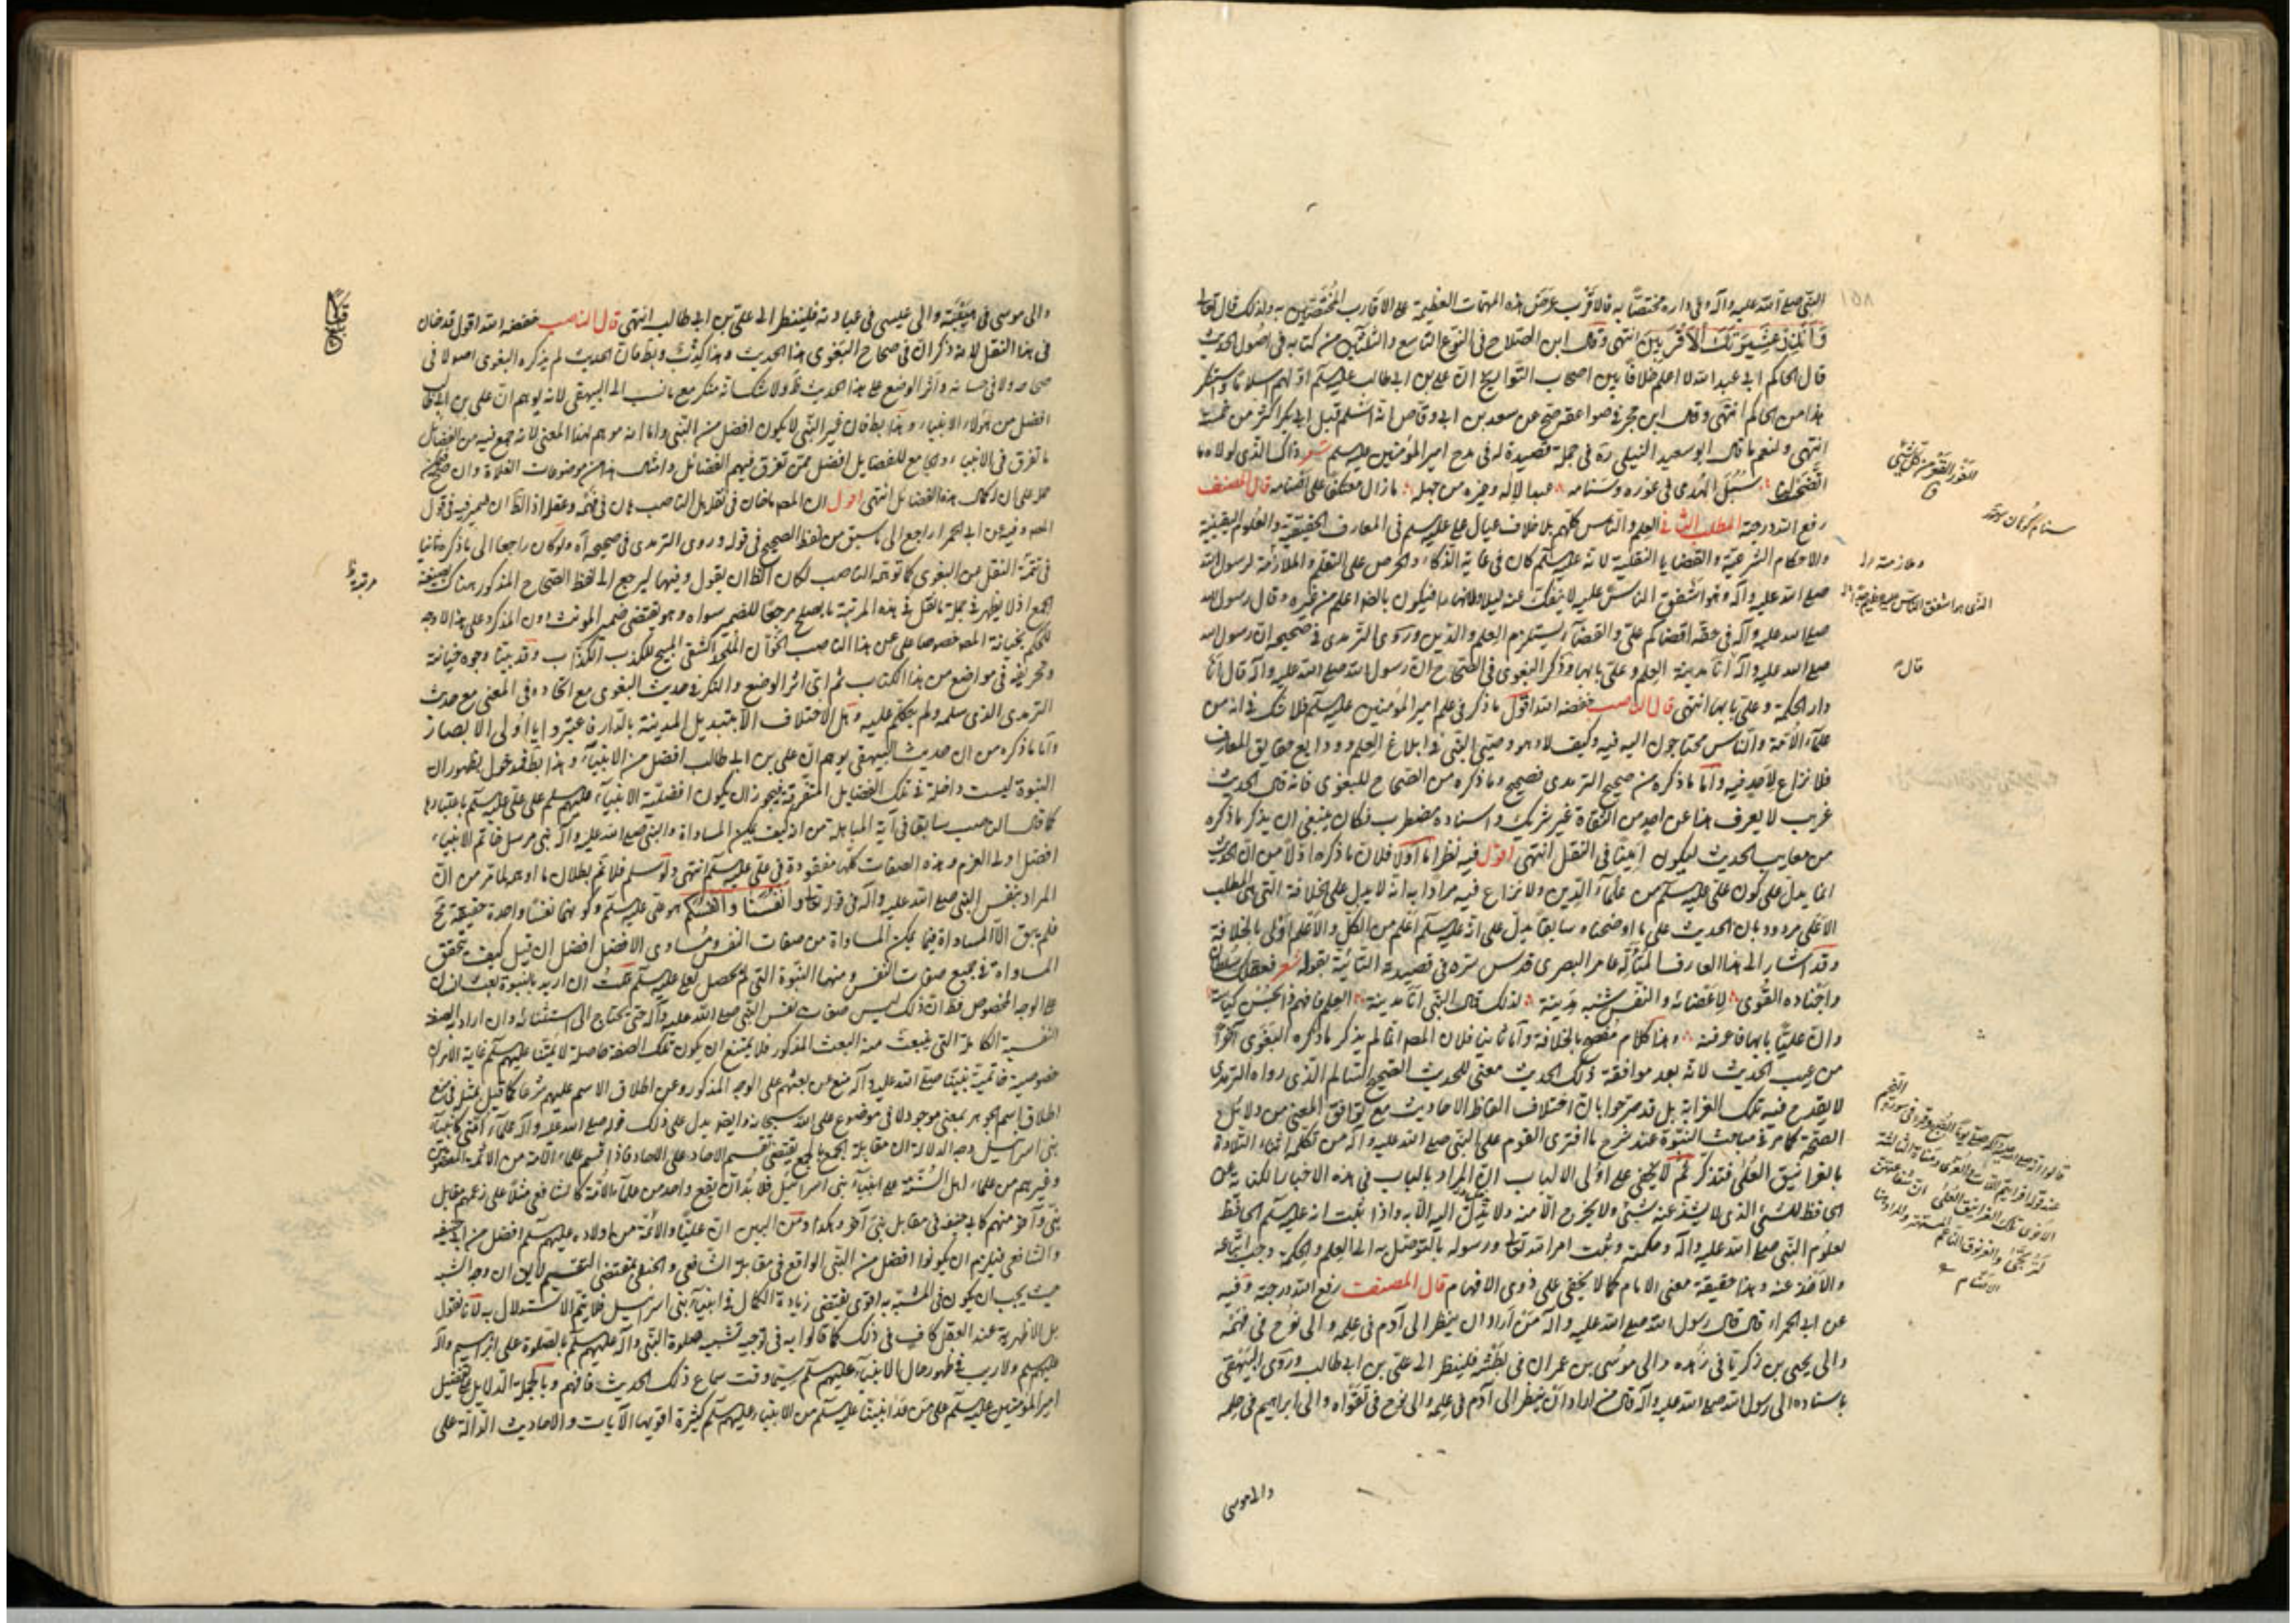 النبي صلى الله عليه وآله وفي داره مختصا به فالأقرب عرض هذه المهمات العظيمة على الاقارب المختصين به ولذلك قال تعالى
وَأَنْذِرْ عَشِيرَتَكَ الْأَقْرَبِينَ انتهى وقال ابن الصلاح في النوع التاسع والثلثين من كتابه في اصول الحديث
قال الحاكم ابي عبد الله لا اعلم خلافا بين اصحاب التواريخ ان علي بن ابي طالب عليه السلم اولهم اسلاما واستنكر
هذا من الحاكم انتهى وقال ابن حجر في صواعقه صح عن سعد بن ابي وقاص انه اسلم قبل ابي بكر اكثر من خمسة
انتهى ولنعم ما قال ابو سعيد النيلي ره في جملة قصيدة له في مدح امير المؤمنين عليه السلم شعر ذاك الذي لولاه ما
اتضحت لنا سبل الهدى في غوره وشنامه عبد الاله وغيره من جهله ما زال معتكفا على اصنامه قال المصنف
رفع الله درجته المطلب الثاني العلم والناس كلهم بلا خلاف عيال علي عليه السلم في المعارف الحقيقية والعلوم اليقينية
والاحكام الشرعية والقضايا النقلية لانه عليه السلم كان في غاية الذكاء والحرص على التعلم والملازمة لرسول الله
صلى الله عليه وآله وهو اشفق الناس عليه لا ينفك عنه ليلا ولا نهارا فيكون بالضرورة اعلم من غيره وقال رسول الله
صلى الله عليه وآله في حقه اقضاكم علي والقضاء يستلزم العلم والدين وروى الترمذي في صحيحه ان رسول الله
صلى الله عليه وآله انا مدينة العلم وعلي بابها وذكر البغوي في الصحاح ان رسول الله صلى الله عليه وآله قال انا
دار الحكمة وعلي بابها انتهى قال الناصب خفضه الله اقول ما ذكر في علم امير المؤمنين عليه السلم فلا شك في انه من
علماء الامة والناس محتاجون اليه فيه وكيف لا وهو وصي النبي في ابلاغ العلم وودايع حقايق المعارف
فلا نزاع لاحد فيه واما ما ذكره من صحيح الترمذي فصحيح وما ذكره من الصحاح للبغوي فانه قال الحديث
غريب لا يعرف هذا عن احد من الثقاة غير شريك واسناده مضطرب فكان ينبغي ان يذكر ما ذكره
من معايب الحديث ليكون امينا في النقل انتهى اقول فيه نظر اما اولا فلان ما ذكره اولا من ان الحديث
انما يدل على كون علي عليه السلم من علماء الدين ولا نزاع فيه مرادا به انه لا يدل على الخلافة التي هي المطلب
الاعلى مردود بان الحديث على ما اوضحناه سابقا يدل على انه عليه السلم اعلم من الكل والاعلم اولى بالخلافة
وقد اشار الى هذا العارف المتأله عامر البصري قدس سره في قصيدته التائية بقوله شعر فعقلك سلطان
واجناده القوى لاعضائه والنفس شبه مدينة لذلك قال النبي انا مدينة العلم فافهم ذا بحسن كياسة
وان عليا بابها فاعرفنه وهذا كلام مفصح بالخلافة واما ثانيا فلان المصه انما لم يذكر ما ذكره البغوي آخرا
من عيب الحديث لانه بعد موافقة ذلك الحديث معنى للحديث الصحيح السالم الذي رواه الترمذي
لا يقدح فيه تلك الغرابة بل قد صرحوا بان اختلاف الفاظ الاحاديث مع توافق المعنى من دلائل
الصحة كما مر في مباحث النبوة عند شرح ما افترى القوم على النبي صلى الله عليه وآله من تكلمه اثناء التلاوة
بالغرانيق العلى فتذكر ثم لا يخفى على اولى الالباب ان المراد بالباب في هذه الاخبار الكناية عن
الحافظ للشيء الذي لا يشذ عنه شيء ولا يخرج الا منه ولا يدخل اليه الا به واذا ثبت انه عليه السلم الحافظ
لعلوم النبي صلى الله عليه وآله وحكمته وثبت امر الله تعالى ورسوله بالتوصل به الى العلم والحكمة وجب اتباعه
والاخذ عنه وهذا حقيقة معنى الامام كما لا يخفى على ذوي الافهام قال المصنف رفع الله درجته وفيه
عن ابي الحمراء قال قال رسول الله صلى الله عليه وآله من اراد ان ينظر الى آدم في علمه والى نوح في فهمه
والى يحيى بن زكريا في زهده والى موسى بن عمران في بطشه فلينظر الى علي بن ابي طالب وروى البيهقي
باسناده الى رسول الله صلى الله عليه وآله قال من اراد ان ينظر الى آدم في علمه والى نوح في تقواه والى ابراهيم في حلمه
والى موسى
والى موسى في هيبته والى عيسى في عبادته فلينظر الى علي بن ابي طالب انتهى قال الناصب خفضه الله اقول قد خان
في هذا النقل لانه ذكر ان في صحاح البغوي هذا الحديث وهذا كذب وبطمان الحديث لم يذكره البغوي اصولا في
صحاحه ولا في حسانه واثر الوضع على هذا الحديث ظ ولا شك انه منكر مع ما نسب الى البيهقي لانه يوهم ان علي بن ابي طالب
افضل من هؤلاء الانبياء وهذا بط فان غير النبي لا يكون افضل من النبي واما انه موهم لهذا المعنى لانه جمع فيه من الفضائل
ما تفرق في الانبياء والجامع للفضايل افضل ممن تفرق فيهم الفضائل وامثال هذا من موضوعات الغلاة وان صح
حمل على ان له كمال هذه الفضائل انتهى اقول ان المصه ما خان في نقله بل الناصب خان في فهمه وعقله اذ الظ ان ضمير فيه في قول
المصه وفيه عن ابي الحمراء راجع الى ما سبق من لفظ الصحيح في قوله وروى الترمذي في صحيحه اه ولو كان راجعا الى ما ذكره ثانيا
في تتمة النقل من البغوي كما توهمه الناصب لكان الظ ان يقول وفيها ليرجع الى لفظ الصحاح المذكور هناك بصيغة
الجمع اذ لا يظهر في جملة ما نقل في هذه المرتبة ما يصلح مرجعا للضمير سواه وهو يقتضي ضمير المونث دون المذكر وعلى هذا لا وجه
للحكم بخيانة المصه خصوصا على عن هذا الناصب الخوان الملحد الشقي المبيح للكذب الكذاب وقد بينا وجوه خيانته
وتحريفه في مواضع من هذا الكتاب ثم اي اثر الوضع والنكر في حديث البغوي مع اتحاده في المعنى مع حديث
الترمذي الذي سلمه ولم يتكلم عليه وهل الاختلاف الا بتبديل المدينة بالدار فاعتبروا يا اولى الابصار
واما ما ذكره من ان حديث البيهقي يوهم ان علي بن ابي طالب افضل من الانبياء وهذا بط فمدخول بظهور ان
النبوة ليست داخلة في تلك الفضايل المتفرقة فيجوز ان يكون افضلية الانبياء عليهم السلم على علي عليه السلم باعتبارها
كما قال الناصب سابقا في آية المباهلة من انه كيف يمكن المساواة والنبي صلى الله عليه وآله نبي مرسل خاتم الانبياء
افضل اولى العزم وهذه الصفات كلها مفقودة في علي عليه السلم انتهى ولو سلم فلا ثم بطلان ما اوهمه لما مر من ان
المراد بنفس النبي صلى الله عليه وآله في قوله تعالى وانفسنا وانفسكم هو علي عليه السلم وكونهما نفسا واحدة حقيقة مح
فلم يبق الا المساواة فيما يمكن المساواة من صفات النفس ومساوي الافضل افضل ان قيل كيف تحقق
المساواة في جميع صفات النفس ومنها النبوة التي لم تحصل لعلي عليه السلم قلت ان اريد بالنبوة بعث انسان
على الوجه المخصوص فظ ان ذلك ليس صفات نفس النبي صلى الله عليه وآله حتى يحتاج الى استثنائه وان اراد به الصفة
النفسية الكاملة التي ينبعث منه البعث المذكور فلا يمتنع ان يكون تلك الصفة حاصلة لائمتنا عليهم السلم غاية الامر ان
خصوصية خاتمية نبينا صلى الله عليه وآله منع عن بعثهم على الوجه المذكور وعن اطلاق الاسم عليهم شرعا كما قيل بمثله في منع
اطلاق اسم الجوهر بمعنى موجود لا في موضوع على الله سبحانه وايضا يدل على ذلك قوله صلى الله عليه وآله علماء امتي كانبياء
بني اسرائيل وجه الدلالة ان مقابلة الجمع بالجمع يقتضي تقسيم الاحاد على الاحاد فاذا قسم علماء الامة من الائمة المعصومين
وغيرهم من علماء اهل السنة على انبياء بني اسرائيل فلا بد ان يقع واحد من علماء الامة كالشافعي مثلا على زعمهم مقابل
نبي وآخر منهم كابي حنيفة في مقابل نبي آخر وهكذا ومن البين ان عليا والائمة من اولاده عليهم السلم افضل من ابي حنيفة
والشافعي فيلزم ان يكونوا افضل من النبي الواقع في مقابلة الشافعي والحنفي بمقتضى التقسيم لا يق ان وجه الشبه
حيث يجب ان يكون في المشبه به اقوى يقتضي زيادة الكمال في انبياء بني اسرائيل فلا يتم الاستدلال به لانا نقول
بل الاظهرية عند العقل كاف في ذلك كما قالوا به في توجيه تشبيه صلوة النبي وآله عليهم السلم بالصلوة على ابراهيم وآله
عليهم السلم ولا ريب في ظهور حال الانبياء عليهم السلم سيما وقت سماع ذلك الحديث فافهم وبالجملة الدلايل على تفضيل
امير المؤمنين عليه السلم على من عدا نبينا عليه السلم من الانبياء عليهم السلم كثيرة اقويها الآيات والاحاديث الدالة على